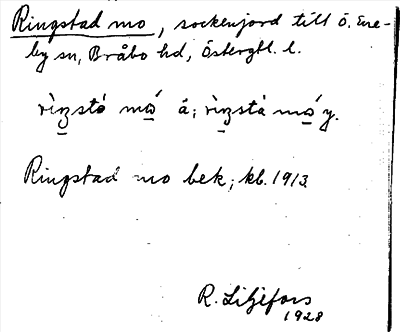 Ringstad mo, sockenjord till Ö. Ene-
by sn, Bråbo hd, Östergtl. l.
rìŋstò mó á; rìŋstà mó y.
Ringstad mo bek; kb. 1913.
R. Liljefors
1928